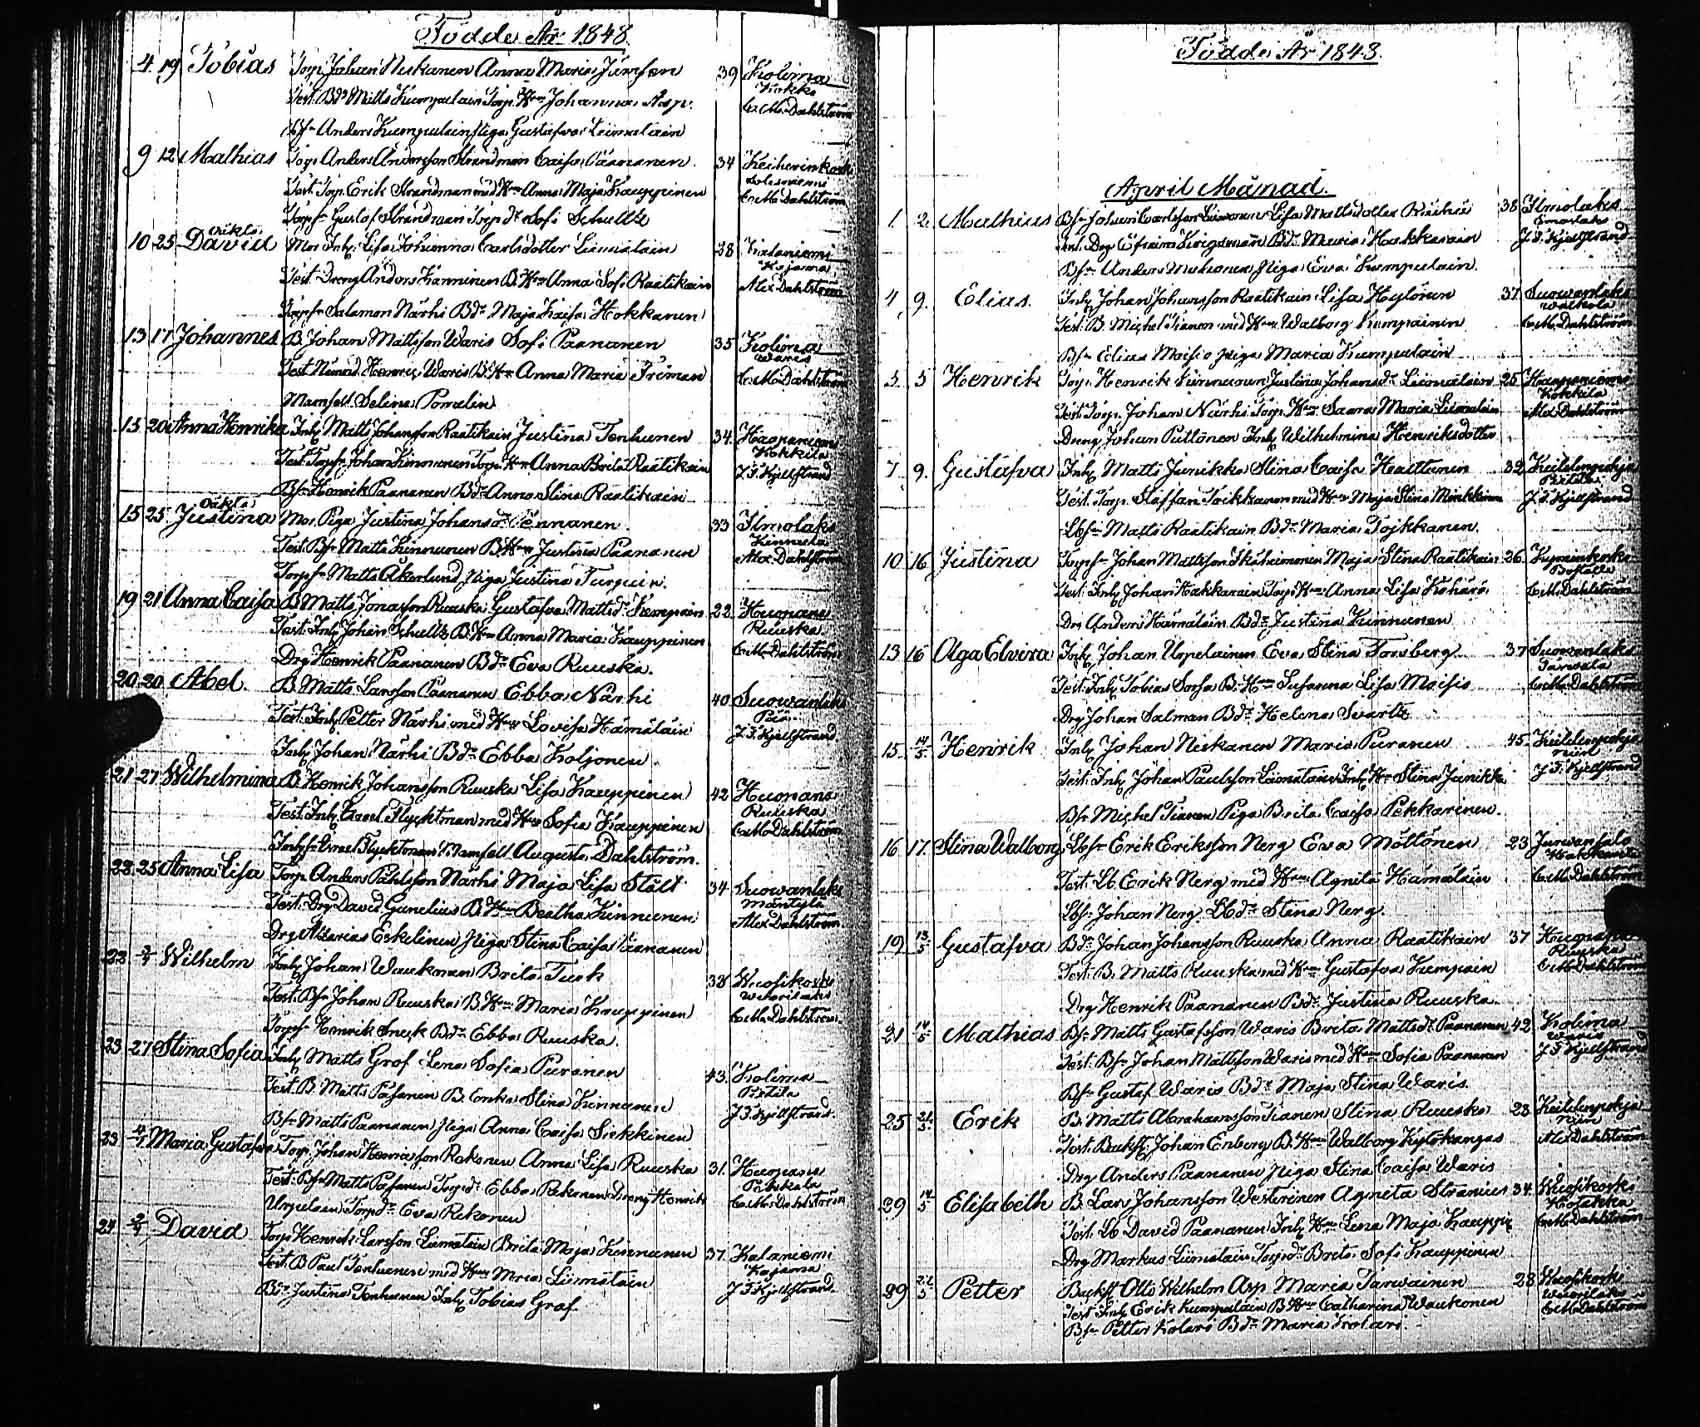 Födde År 1848
4 19 Tobias Torp. Johan Niskanen Anna Maria Jämsen 39 Kolima
Kokko
Test. Bd. Matts Kumpulain Torp. Hru Johanna Asp. C.M. Dahlström
Bs. Anders Kumpulain Piga Gustafva Liimatain
9 12 Mathias Torp. Anders Andersson Strandman Caisa Paananen 34 Keiherinkoski
Test. Torp. Erik Strandman med Hru Anna Maja Kauppinen C.M. Dahlström
Torps. Gustaf Strandman Torpdr Sofi Schultz
oäkta
10 25 David Mor Inh. Lisa Johanna Carlsdotter Liimatain 28 Kalaniemi
Kojama
Test. Dreng Anders Kanninen B. Hru Anna Sofi Raatikain Alex Dahlström
Torps. Salomon Närhi Bd. Maja Kaisa Hokkanen
13 17 Johannes B. Johan Mattsson Waris Sofi Paananen 35 Kolima
Waris
Test. Nämnd. Henric Waris B. Hru Anna Maria Friman C.M. Dahlström
Mamsell Selina Pomelin
15 20 Anna Henrika Inh. Matts Johansson Raatikain Justina Tenhunen 34 Haapaniemi
Kokkila
Test. Torps. Johan Kinnunen Torp. Hru Anna Brita Raatikain J.F. Kjellstrand
Bs. Henrik Paananen Bd. Anna Stina Raatikain
Oäkta
15 25 Justina Mor Piga Justina Johansdr Pennanen 33 Ilmolaks
Kinnula
Test. Bs. Matts Kinnunen B. Hru Justina Paananen Alex Dahlström
Torps. Matts Åkerlund Piga Justina Turpein
19 21 Anna Caisa B. Matts Jonasson Ruuska Gustafva Mattsdr Kumpain 22 Huopana
Ruuska
Test. Inh. Johan Schultz B. Hru Anna Maria Kauppinen C.M. Dahlström
Drg Henrik Paananen Bd. Eva Ruuska
20 20 Abel B. Matts Larsson Paananen Ebba Närhi 40 Suowanlaks
Test. Inh. Petter Närhi med Hru Lovisa Hämäläin J.F. Kjellstrand
Inh. Johan Närhi Bd. Ebba Koljonen
21 27 Wilhelmina B. Henrik Johansson Ruuska Lisa Kauppinen 42 Huopana
Ruuska
Test. Inh. Israel Flycktman med Hru Sofia Kauppinen C.M. Dahlström
Inhs. Israel Flycktman Mamsell Augusta Dahlström
22 25 Anna Lisa Torp. Anders Pählsson Närhi Maja Lisa Ståld 34 Suowanlaks
Mäntylä
Test. Drg David Gunelius B. Hru Beatha Kinnunen Alex Dahlström
Drg Zakarias Eskelinen Piga Stina Caisa Paananen
22 2/4 Wilhelm Inh. Johan Waukonen Brita Tusk 38 Wuosikoski
Test. Bs. Johan Ruuska B. Hru Maria Kauppinen C.M. Dahlström
Torps. Henrik Snuk Bd. Ebba Ruuska
23 27 Stina Sofia Inh. Matts Grof Lena Sofia Puranen 43 Kolima
Test. B. Matts Pasanen B. Enka Stina Kinnunen J.F. Kjellstrand
Bs. Matts Paananen Piga Anna Caisa Siekkinen
23 Maria Gustafva Torp. Johan Henricsson Rekonen Anna Lisa Ruuska 31 Huopana
Test. Bs. Matts Pasanen Torpdr Ebba Rekonen Dreng Henrik C.M. Dahlström
Urpelain Torpdr Eva Rekonen
24 2/4 David Torp. Henrik Larsson Liimatain Brita Maja Kinnunen 37 Kalaniemi
Kojama
Test. B. Paul Tenhunen med Hru Maria Liimatain J.F. Kjellstrand
Bdr Justina Tenhunen Inh. Tobias Graf
Födde År 1848
April Månad
1 2 Mathias Bs. Johan Carlsson Liimatain Lisa Mattsdotter 38 Ilmolaks
Test. Drg Efraim Bd. Maria Hakkarain J.F. Kjellstrand
Bs. Anders Piga Eva Kumpulain
4 9 Elias Inh. Johan Johansson Raatikain Lisa Hytönen 37 Suowanlaks
Test. B. Michel Tianen med Hru Walborg Kumpainen C.M. Dahlström
Bs. Elias Moisio Piga Maria Kumpulain
5 5 Henrik Torp. Henrik Kinnunen Justina Johansdr Liimatain 25 Haapaniemi
Kokkila
Test. Torp. Johan Närhi Torp. Hru Saara Maria Liimatain Alex Dahlström
Dreng Johan Puttonen Inh. Wilhelmina Henriksdotter
7 9 Gustafva Inh. Matts Junikka Stina Caisa Hauttunen 32 Keitelepohja
Test. Torp. Staffan Toikkanen med Hru Maja Stina Minkkinen J.F. Kjellstrand
Lbs. Matts Raatikain Bd. Maria Tojkkanen
10 16 Justina Torps. Johan Mattsson Maja Stina Raatikain 26
Test. Inh. Johan Hakkarain Torp. Hru Anna Lisa Koharo C.M. Dahlström
Drg Anders Hämäläin Bd. Justina Kinnunen
13 16 Olga Elvira Inh. Johan Urpelainen Eva Stina Forsberg 37 Suowanlaks
Test. Inh. Tobias Sorsa B. Hru Susanna Lisa Moisio C.M. Dahlström
Drg Johan Salman Bd. Helena Svartz
15 14/5 Henrik Inh. Johan Niskanen Maria Puranen 45 Keitelepohja
Test. Inh. Johan Paulsson Liimatain Inh. Hru Stina Junikka J.F. Kjellstrand
Bs. Michel Tianen Piga Brita Caisa Pekkarinen
16 17 Stina Walborg Lbs. Erik Eriksson Nerg Eva Möttönen 23
Test. Lb. Erik Nerg med Hru Agnita Hämäläin C.M. Dahlström
Lbs. Johan Nerg Lbdr Stina Nerg
19 13/5 Gustafva Bd. Johan Johansson Ruuska Anna Raatikain 37 Huopana
Ruuska
Test. B. Matts Ruuska med Hru Gustafva Kumpain C.M. Dahlström
Drg Henrik Paananen Bdr Justina Ruuska
21 14/5 Mathias Bs. Matts Gustafsson Waris Brita Mattsdr Paananen 42 Kolima
Waris
Test. Bs. Johan Mattsson Waris med Hru Sofia Paananen J.F. Kjellstrand
Bs. Gustaf Waris Bdr Maja Stina Waris
25 21/5 Erik B. Matts Abrahamsson Tianen Stina Ruuska 23 Keitelepohja
Test. Buckh. Johan Enberg B. Hru Walborg Kytökangas Alex Dahlström
Drg Anders Paananen Piga Stina Caisa Waris
29 14/5 Elisabeth B. Lars Johansson Westerinen Agneta Stranius 34 Wuosikoski
Test. Lb. David Paananen Inh. Hru Lena Maja Kauppi C.M. Dahlström
Drg Markus Liimatain Torpdr Brita Sofi Kauppinen
29 Petter Buckh. Otto Wilhelm Asp Maria Tarwainen 28 Wuosikoski
Test. Inh. Erik Kumpulain B. Hru Catharina Waukonen C.M. Dahlström
Bs. Petter Kolari Bdr Maria Kolari